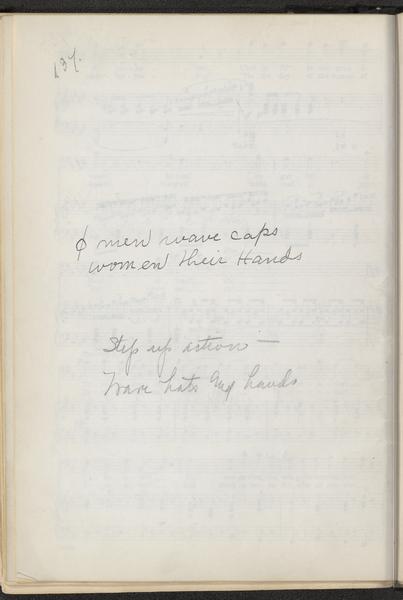 137.
ϕ men wave caps
women their Hands
Step up action —
Wave hats and hands